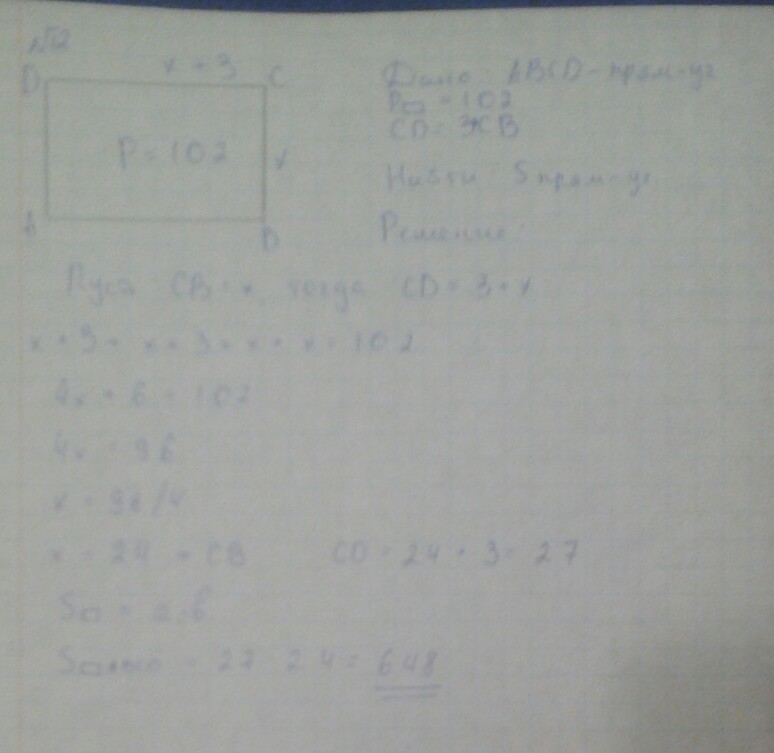 №12
D x + 3 C
P = 102 x
A D
Дано: ABCD - прям-уг
P▭ = 102
CD = 3+CB
Найти S прям-уг
Решение:
Пусть CB = x, тогда CD = 3 + x
x + 3 + x + 3 + x + x = 102
4x + 6 = 102
4x = 96
x = 96/4
x = 24 = CB CD = 24 + 3 = 27
S▭ = a·b
S▭ = 27 · 24 = 648